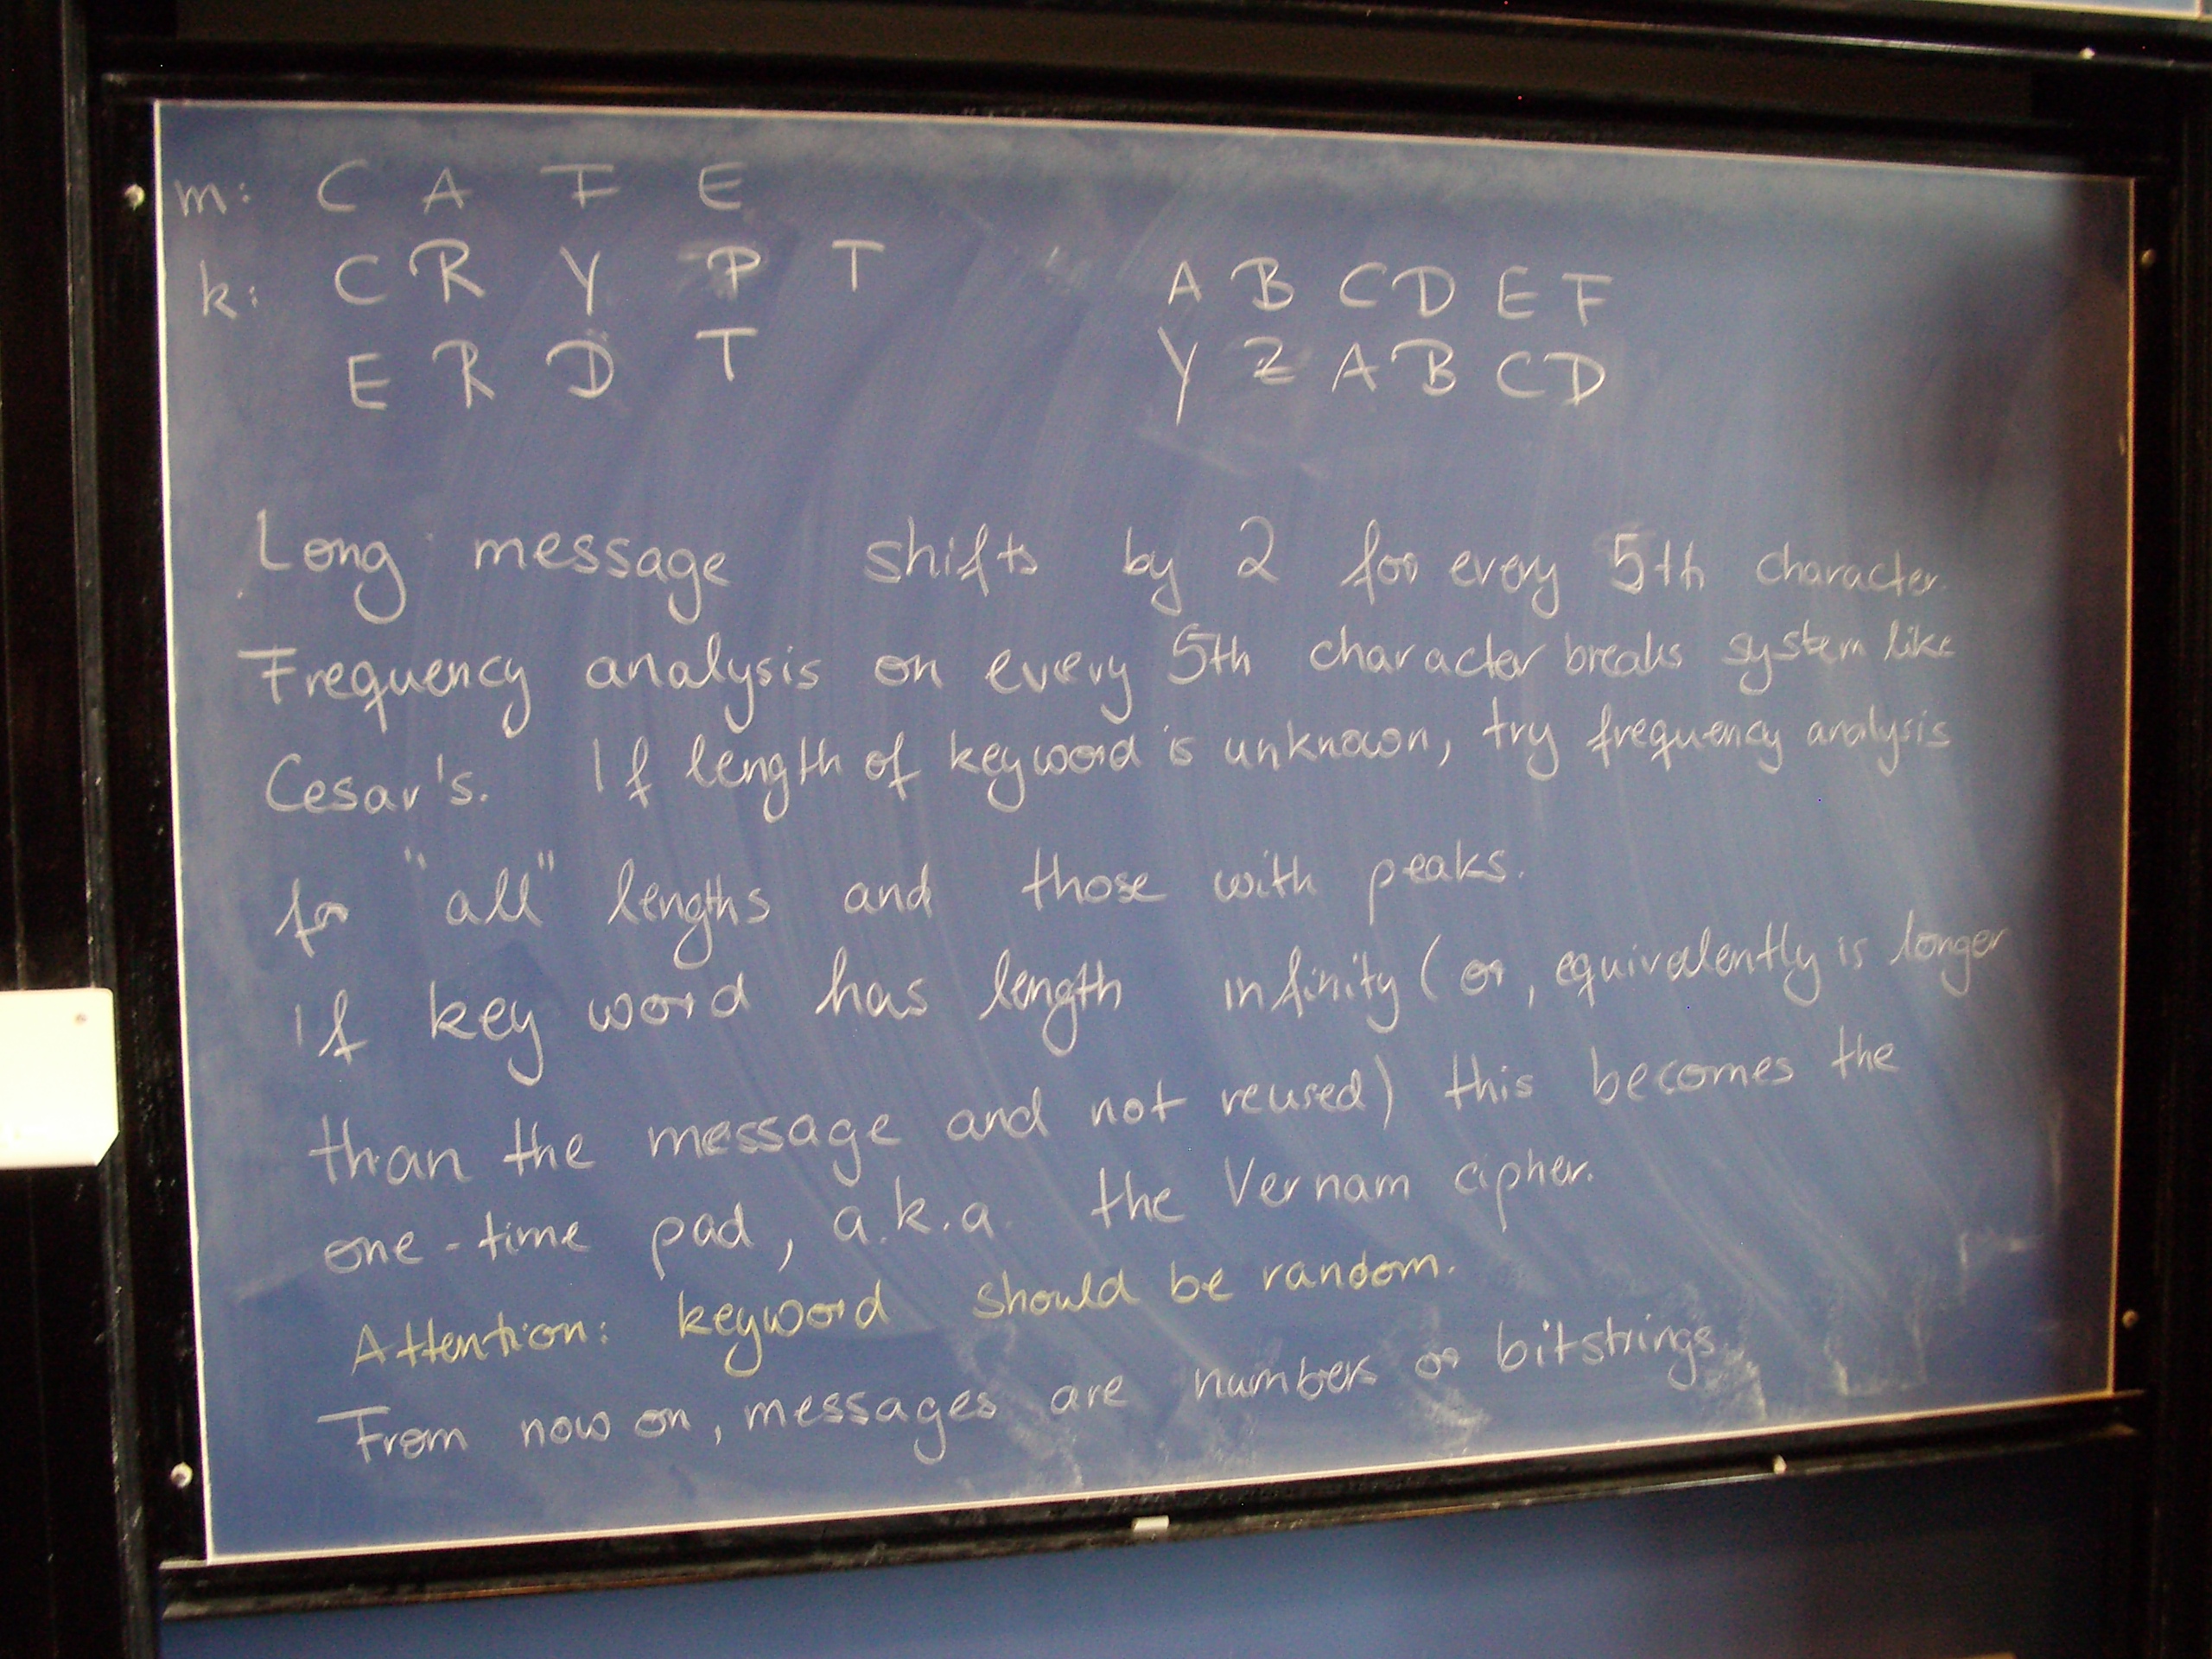 m: C A F E
k: C R Y P T
E R D T
A B C D E F
Y Z A B C D
Long message shifts by 2 for every 5th character.
Frequency analysis on every 5th character breaks system like
Cesar's. If length of keyword is unknown, try frequency analysis
for "all" lengths and those with peaks.
If key word has length infinity (or, equivalently is longer
than the message and not reused) this becomes the
one-time pad, a.k.a. the Vernam cipher.
Attention: keyword should be random.
From now on, messages are numbers or bitstrings.